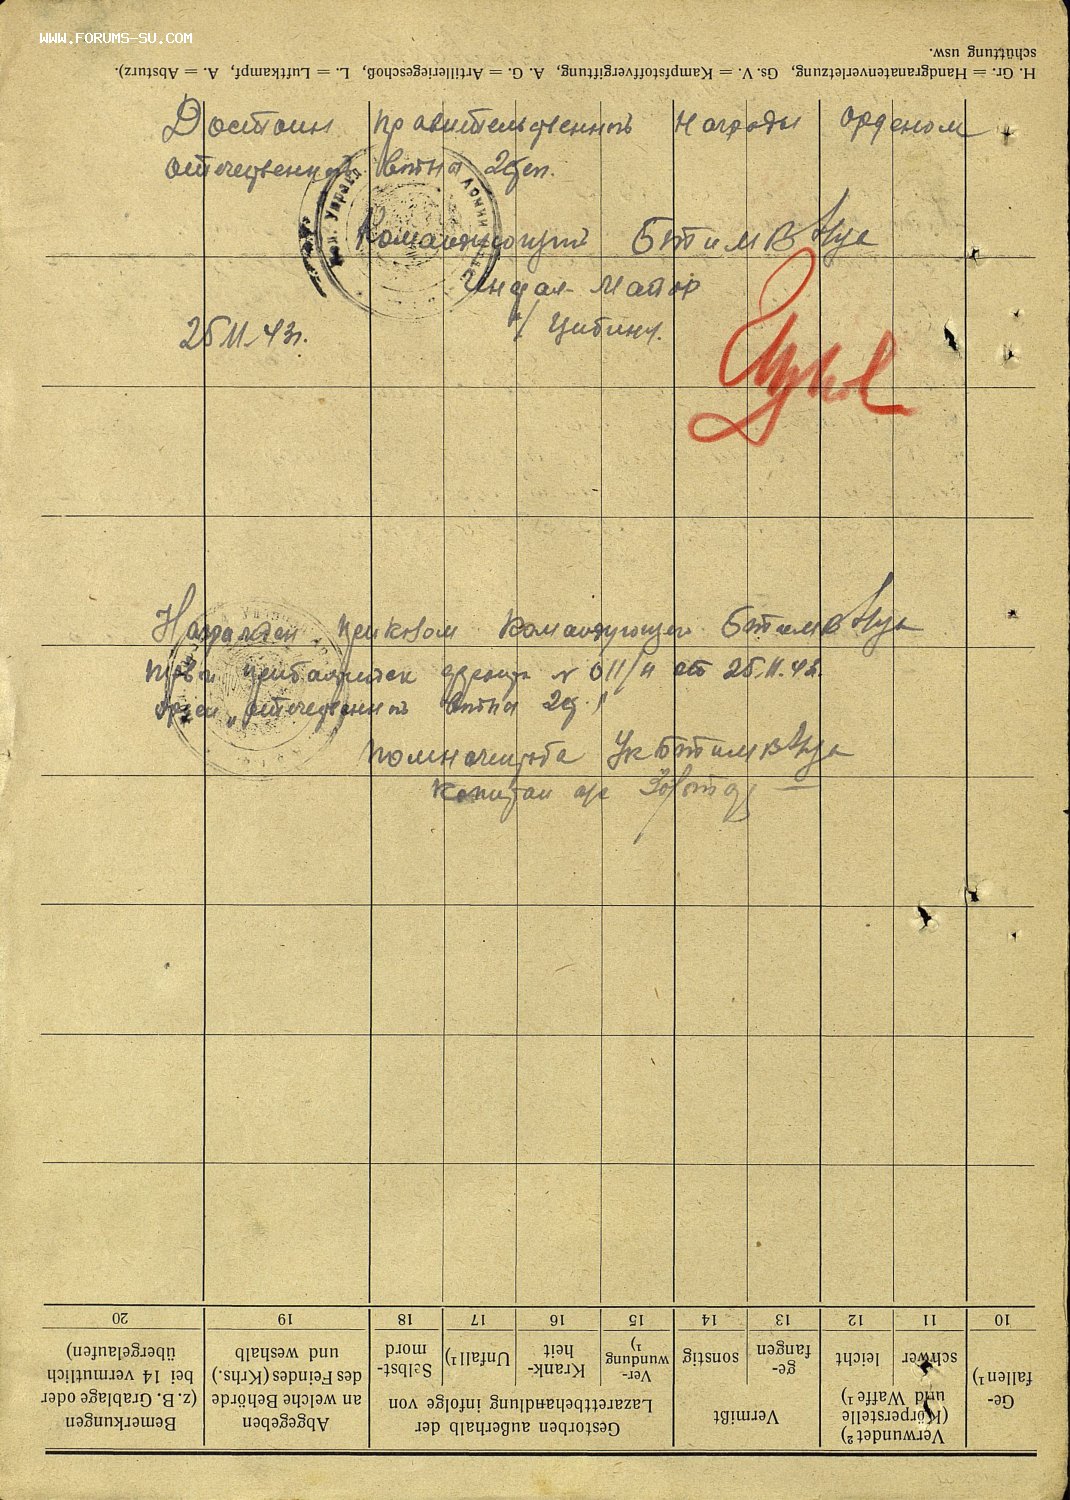 WWW.FORUMS-SU.COM
H. Gr. = Handgranatenverletzung, Gs. V. = Kampfstoffvergiftung, A. G. = Artilleriegeschoß, L. = Luftkampf, A. = Absturz).
schüttung usw.
Достоин правительственной награды орденом
отечественной войны 2 степ.
Командующий БТ и МВ
Майор
25.11.43г.
Награжден приказом Командующего БТ и МВ
фронта № 011/н от 25.11.43г.
"отечественной войны 2
БТ и МВ
Капитан
Ge-
fallen¹)
10
Verwundet²)
(Körperstelle
und Waffe¹)
schwer
11
leicht
12
Vermißt
ge-
fangen
13
sonstig
14
Gestorben außerhalb der
Lazarettbehandlung infolge von
Ver-
wundung
¹)
15
Krank-
heit
16
Unfall¹)
17
Selbst-
mord
18
Abgegeben
an welche Behörde
des Feindes (Krhs.)
und weshalb
19
Bemerkungen
(z. B. Grablage oder
bei 14 vermutlich
übergelaufen)
20